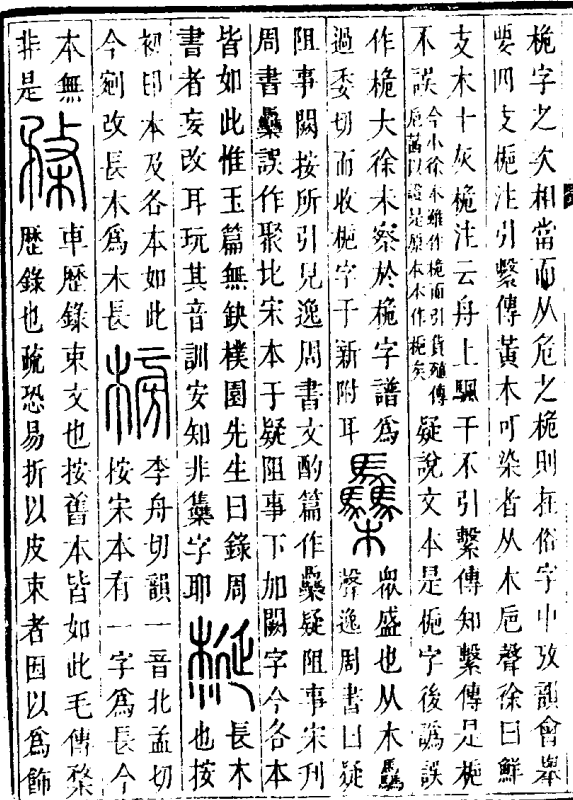 桅字之次相當而从危之桅則在俗字中攷韻會舉
要四支梔注引繫傳黃木可染者从木巵聲徐曰鮮
支木十灰桅注云舟上颿干不引繫傳知繫傳是梔
不誤今小徐本雖作桅而引貨殖傳巵茜以證是原本木作梔矣疑說文本是梔字後譌誤
作桅大徐未察於桅字譜爲𣡌眾盛也从木驫
過委切而收梔字于新附耳聲逸周書曰疑
阻事闕按所引見逸周書文酌篇作𣡌疑阻事宋刊
周書𣡌誤作聚比宋本于疑阻事下加闕字今各本
皆如此惟玉篇無缺樸園先生曰錄周梴長木
書者妄改耳玩其音訓安知非𣡌字耶也按
初印本及各本如此榜李舟切韻一音北孟切
今剜改長木爲木長按宋本有一字爲長今
本無楘車歷錄束文也按舊本皆如此毛傳楘
非是歷錄也疏恐易折以皮束者因以爲飾